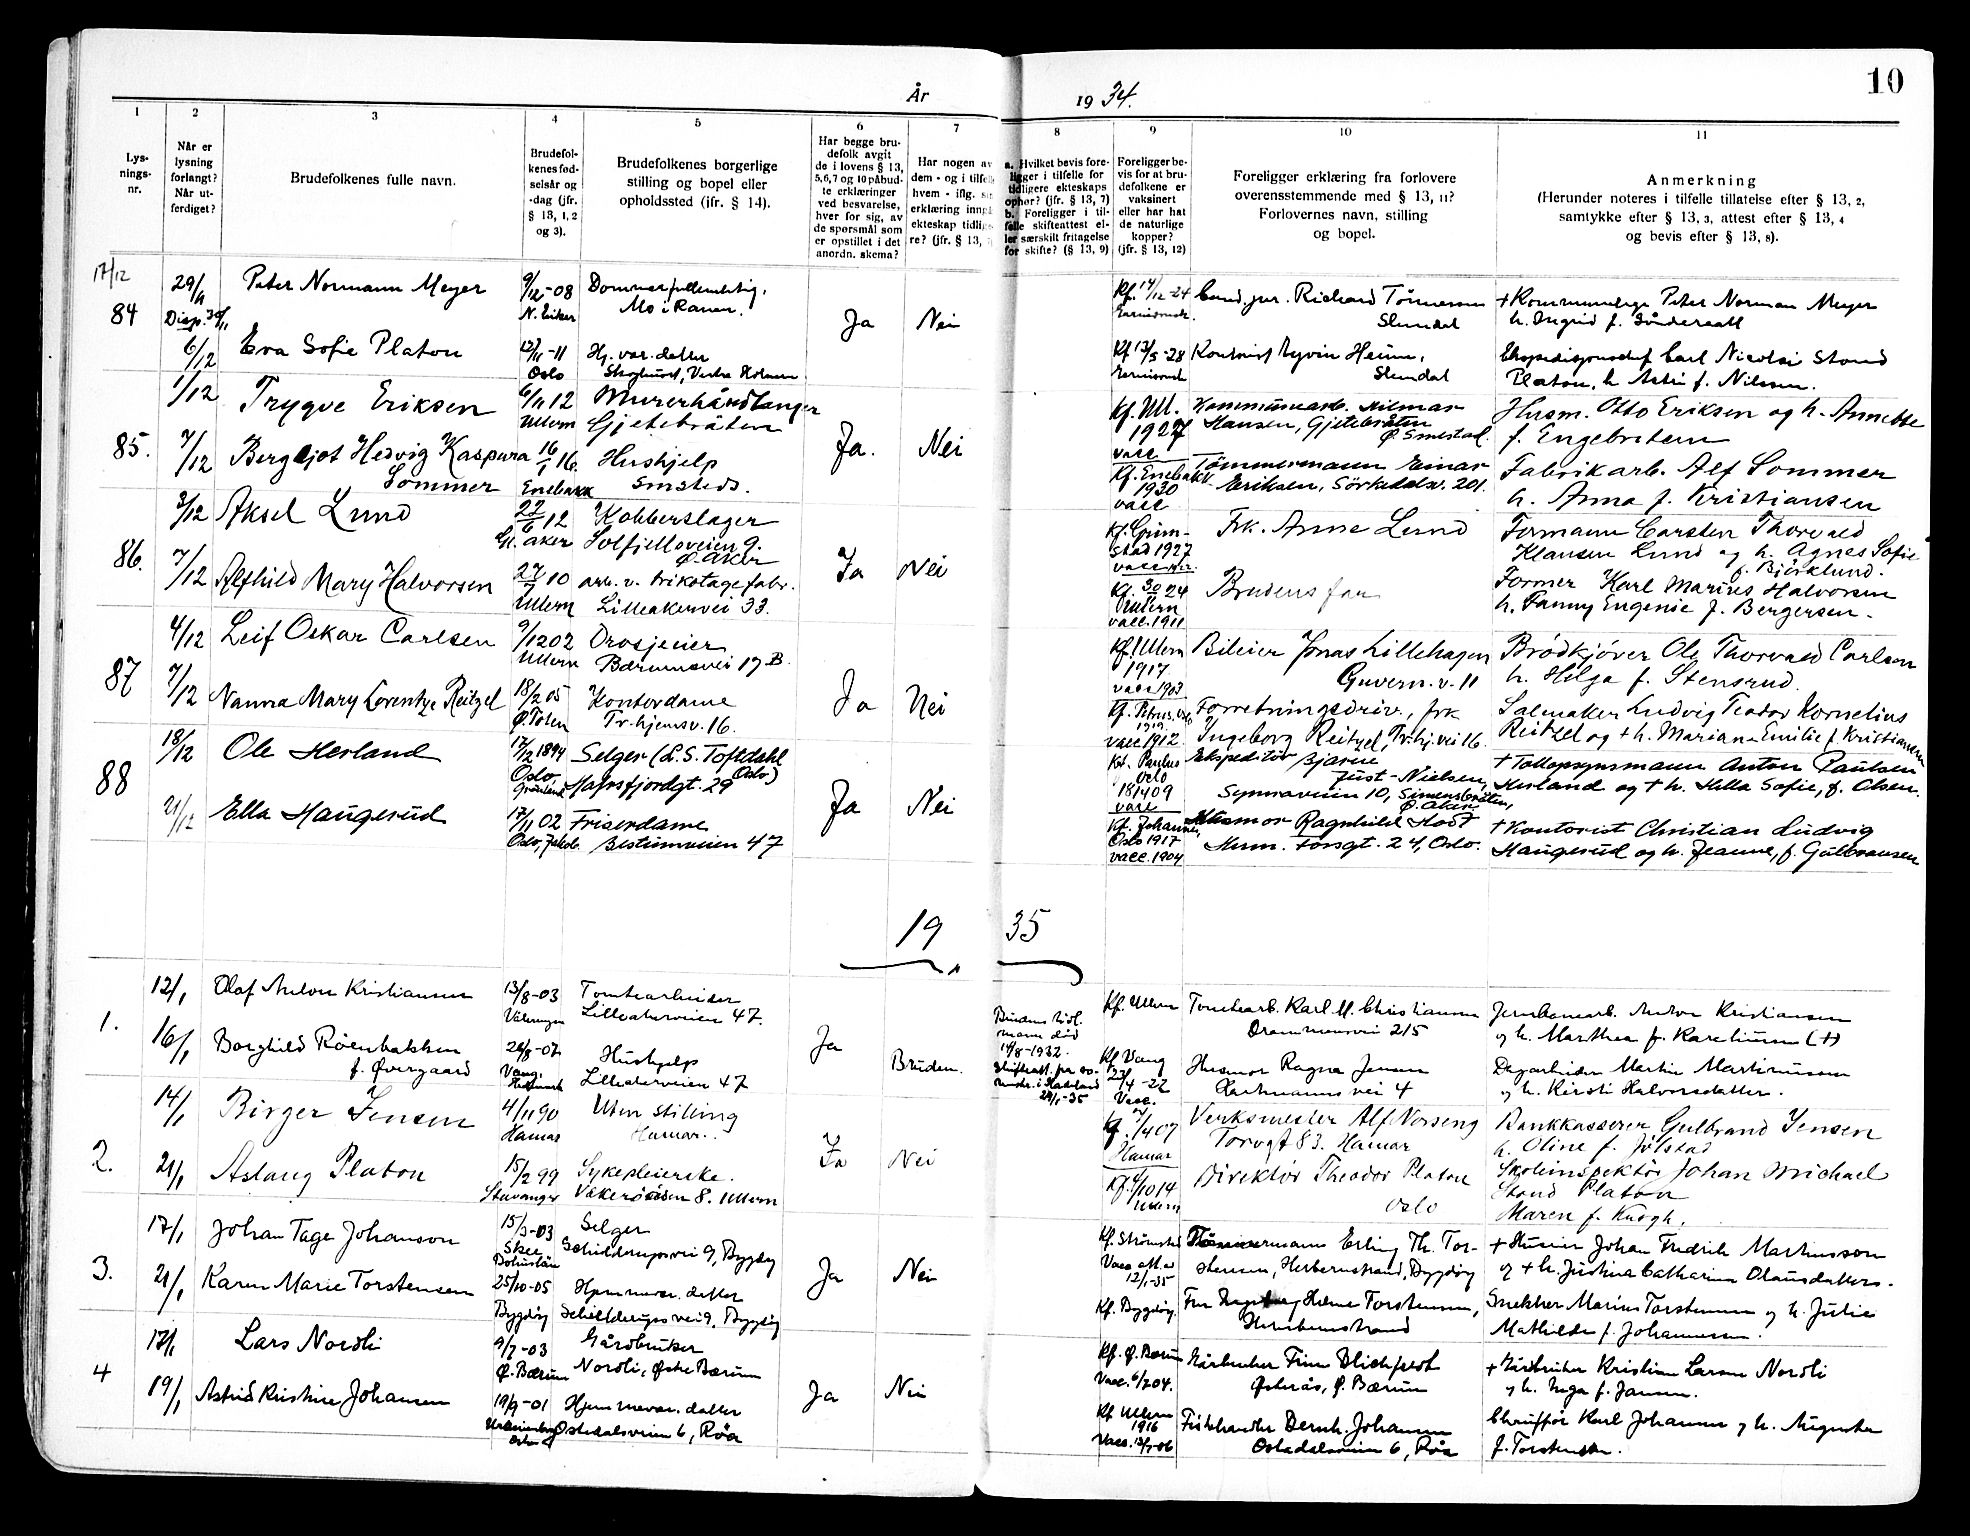 10
År 1934.
1
Lys-
nings-
nr.
2
Når er
lysning
forlangt?
Når ut-
ferdiget?
3
Brudefolkenes fulle navn.
4
Brudefol-
kenes fød-
selsår og
-dag (jfr.
§ 13, 1, 2
og 3).
5
Brudefolkenes borgerlige
stilling og bopel eller
opholdssted (jfr. § 14).
6
Har begge bru-
defolk avgit
de i lovens § 13,
5,6,7 og 10 påbud-
te erklæringer
ved besvarelse,
hver for sig, av
de spørsmål som
er opstillet i det
anordn. skema?
7
Har nogen av
dem - og i tilfelle
hvem - iflg.
erklæring inng
ekteskap tidlig-
re? (jfr. § 13,
8
a. Hvilket bevis fore-
ligger i tilfelle for
tidligere ekteskaps
ophør? (jfr. § 13, 7)
b. Foreligger i til-
felle skifteattest el-
ler særskilt fritagelse
for skifte? (§ 13, 9)
9
Foreligger be-
vis for at bru-
defolkene er
vaksinert
eller har hat
de naturlige
kopper?
(jfr. § 13, 12)
10
Foreligger erklæring fra forlovere
overensstemmende med § 13, 11?
Forlovernes navn, stilling
og bopel.
11
Anmerkning
(Herunder noteres i tilfelle tillatelse efter § 13, 2,
samtykke efter § 13, 3, attest efter § 13, 4
og bevis efter § 13, 8).
17/12
84
29/11
Disp. 30/11
6/12
Peter Normann Meyer
9/12-08
N. Eiker
Dommerfullmektig,
Mo i Ranen.
Ja
Nei
Kf. 14/12-24
Cand. jur. Richard Tönnesen
† Kommunelæge Peter Norman Meyer
h. Ingrid f.
Eva Sofie Platou
11-11
Oslo
Hj. vær. datter
Skoghust, Vestre Holmen
Kf 13/5-28
Kontorist Eyvin Heium,
Ekspedisjonschef Carl Nicolai Stoud
Platou, h Astri f. Nilssen.
85.
1/12
7/12
Trygve Eriksen
6/11 12
Ullern
Murerhåndlanger
Gjetebråten
Ja.
Nei
Kf. Ull.
1927
vacc
Kommunearb. Hilmar
Hansen, Gjetebråten
Ø. Smestad.
Husm. Otto Eriksen og h. Annette
f. Engebretsen
Bergljot Hedvig Kaspara
Sommer
16/1 16.
Enebakk
Hushjelp
smsteds.
Kf. Enebakk
1930
vacc
Tömmermann Einar
Eriksen, Sörkedalsv. 201.
Fabrikarb. Alf Sommer
h. Anna f. Kristiansen
86.
3/12
7/12
Aksel Lund
22/6 12
Gl. Aker
Kobberslager
Solfjellveien 9.
Ø. Aker
Ja
Nei
Kf. Grim-
stad 1927
Frk. Anne Lund
Formann Carsten Thorvald
Klausen Lund og h. Agnes Sofie
f. Björklund.
Alfhild Mary Halvorsen
27/7 10
Ullern
arb. v. trikotagefabr.
Lilleakervei 33.
Kf. 30/11 24
Ullern
vacc. 1911
Brudens far
Former Karl Marius Halvorsen
h. Fanny Eugenie f. Bergersen.
87
4/12
7/12
Leif Oskar Carlsen
9/12 02
Ullern
Drosjeeier
Bærumsvei 17 B.
Ja
Nei
Kf. Ullern
1917
vacc 1903
Bileier Jonas Lillehagen
Guvern. v. 11
Brödkjörer Ole Thorvald Carlsen
h. Helga f. Stensrud.
Nanna Mary Lorentze Reitzel
18/2 05
Ø. Toten
Kontordame
Tr. hjemsv. 16.
Kf. Petrus, Oslo
1919
vacc 1912
Forretningsdriv., frk
Ingeborg Reitzel, Tr. hj. vei 16.
Salmaker Ludvig Teodor Kornelius
Reitzel og † h. Mariane Emilie f. Kristiansen
88
18/12
21/12
Ole Hesland
17/12 1894
Oslo,
Grønland
Selger (L. S. Toftdahl
Oslo)
Hafrsfjordgt. 29
Ja
Nei
Kf. Paulus
Oslo
1909
vacc
Ekspeditør Bjarne
Just-Nielsen,
Synnaveien 10, Simensbråten,
Ø. Aker
† Tollopsynsmann Anton Paulsen
Hesland og † h. Hella Sofie, f. Olsen.
Ella Haugerud
17/11 02
Oslo, Jakob
Friserdame
Bestumveien 47
Kf. Johannes,
Oslo 1917
vacc. 1904
Husmor Ragnhild Hodt
Thom. Forsgt. 24, Oslo.
† Kontorist Christian Ludvig
Haugerud og h. Jeanne, f. Gulbransen
1935
1.
12/1
16/1
Olaf Anton Kristiansen
13/8-03
Vålerengen
Tomtearbeider
Lilleakerveien 47.
Ja
Kf. Ullern
Tomtearb. Karl M. Christiansen
Drammensvei 215
Jernbanearb. Anton Kristiansen
og h. Marthea f. Kareliussen (†)
Borghild Røenbakken
f. Øvergaard
26/8-07
Vang,
Hedmark
Hushjelp
Lilleakerveien 47
Bruden.
Brudens tidl.
mann død
14/8-1932.
Skifteatt. fra so-
renskr. i Hadeland
24/1-35
Kf. Vang
27/4-22
Vacc.
Husmor Ragna Jensen
Hartmanns vei 4
Dagarbeider Martin Martinussen
og h. Kirsti Halvorsdatter.
2.
14/1
21/1
Birger Jensen
4/11 90
Hamar
Uten stilling
Hamar.
Ja
Nei
Kf. /4 07
Hamar
Verksmester Alf Norseng
Torvgt 83. Hamar
Bankkasserer Gulbrand Jensen
h. Oline f. Jölstad
Aslaug Platou
15/2 99
Stavanger
Sykepleierske.
Vækeröveien 8. Ullern
Kf. 4/10 14
Ullern
Direktör Theodor Platou
Oslo
Skoleinspektör Johan Michael
Stoud Platou
Maren f. Krogh.
3.
17/1
21/1
Johan Tage Johanson
15/3-03
Skee
Bohuslän
Selger
Schilderupsvei 9, Bygdøy
Ja
Nei
Kf. Strømstad
Vacc. att. av
12/1-35
Tømmermann Erling Th. Tor-
stensen, Herbernstrand, Bygdöy
† Huseier Johan Fredrik Martinsson
og † h. Justina Catharina Olausdotters.
Karen Marie Torstensen
25/10-05
Bygdøy
Hjemmevær. datter
Schilderupsvei 9, Bygdöy
Kf. Bygdöy
Fru Ingeborg Helene Torstensen,
Herbernstrand
Snekker Marius Torstensen og h. Julie
Mathilde f. Johannesen.
4
17/1
19/1
Lars Nordli
9/7-03
Ø. Bærum
Gårdbruker
Nordli, Østre Bærum
Ja
Nei
Kf. Ø. Bærum
Vacc. 6/2 04.
Gårbruker Finn Blichfeldt
Østerås, Ø. Bærum
† Gårdbruker Kristian Larsen Nordli
og h. Inga f. Jansen.
Astrid Kristine Johansen
19/9-01
Uranienborg
Oslo
Hjemmevær. datter
Ostadalsveien 6, Røa
Kf. Ullern
1916
Vacc. 13/7-06
Fiskehandler Bernh. Johansen
Ostadalsveien 6, Röa
Chauffør Karl Johansen og h. Augusta
f. Torstensen.